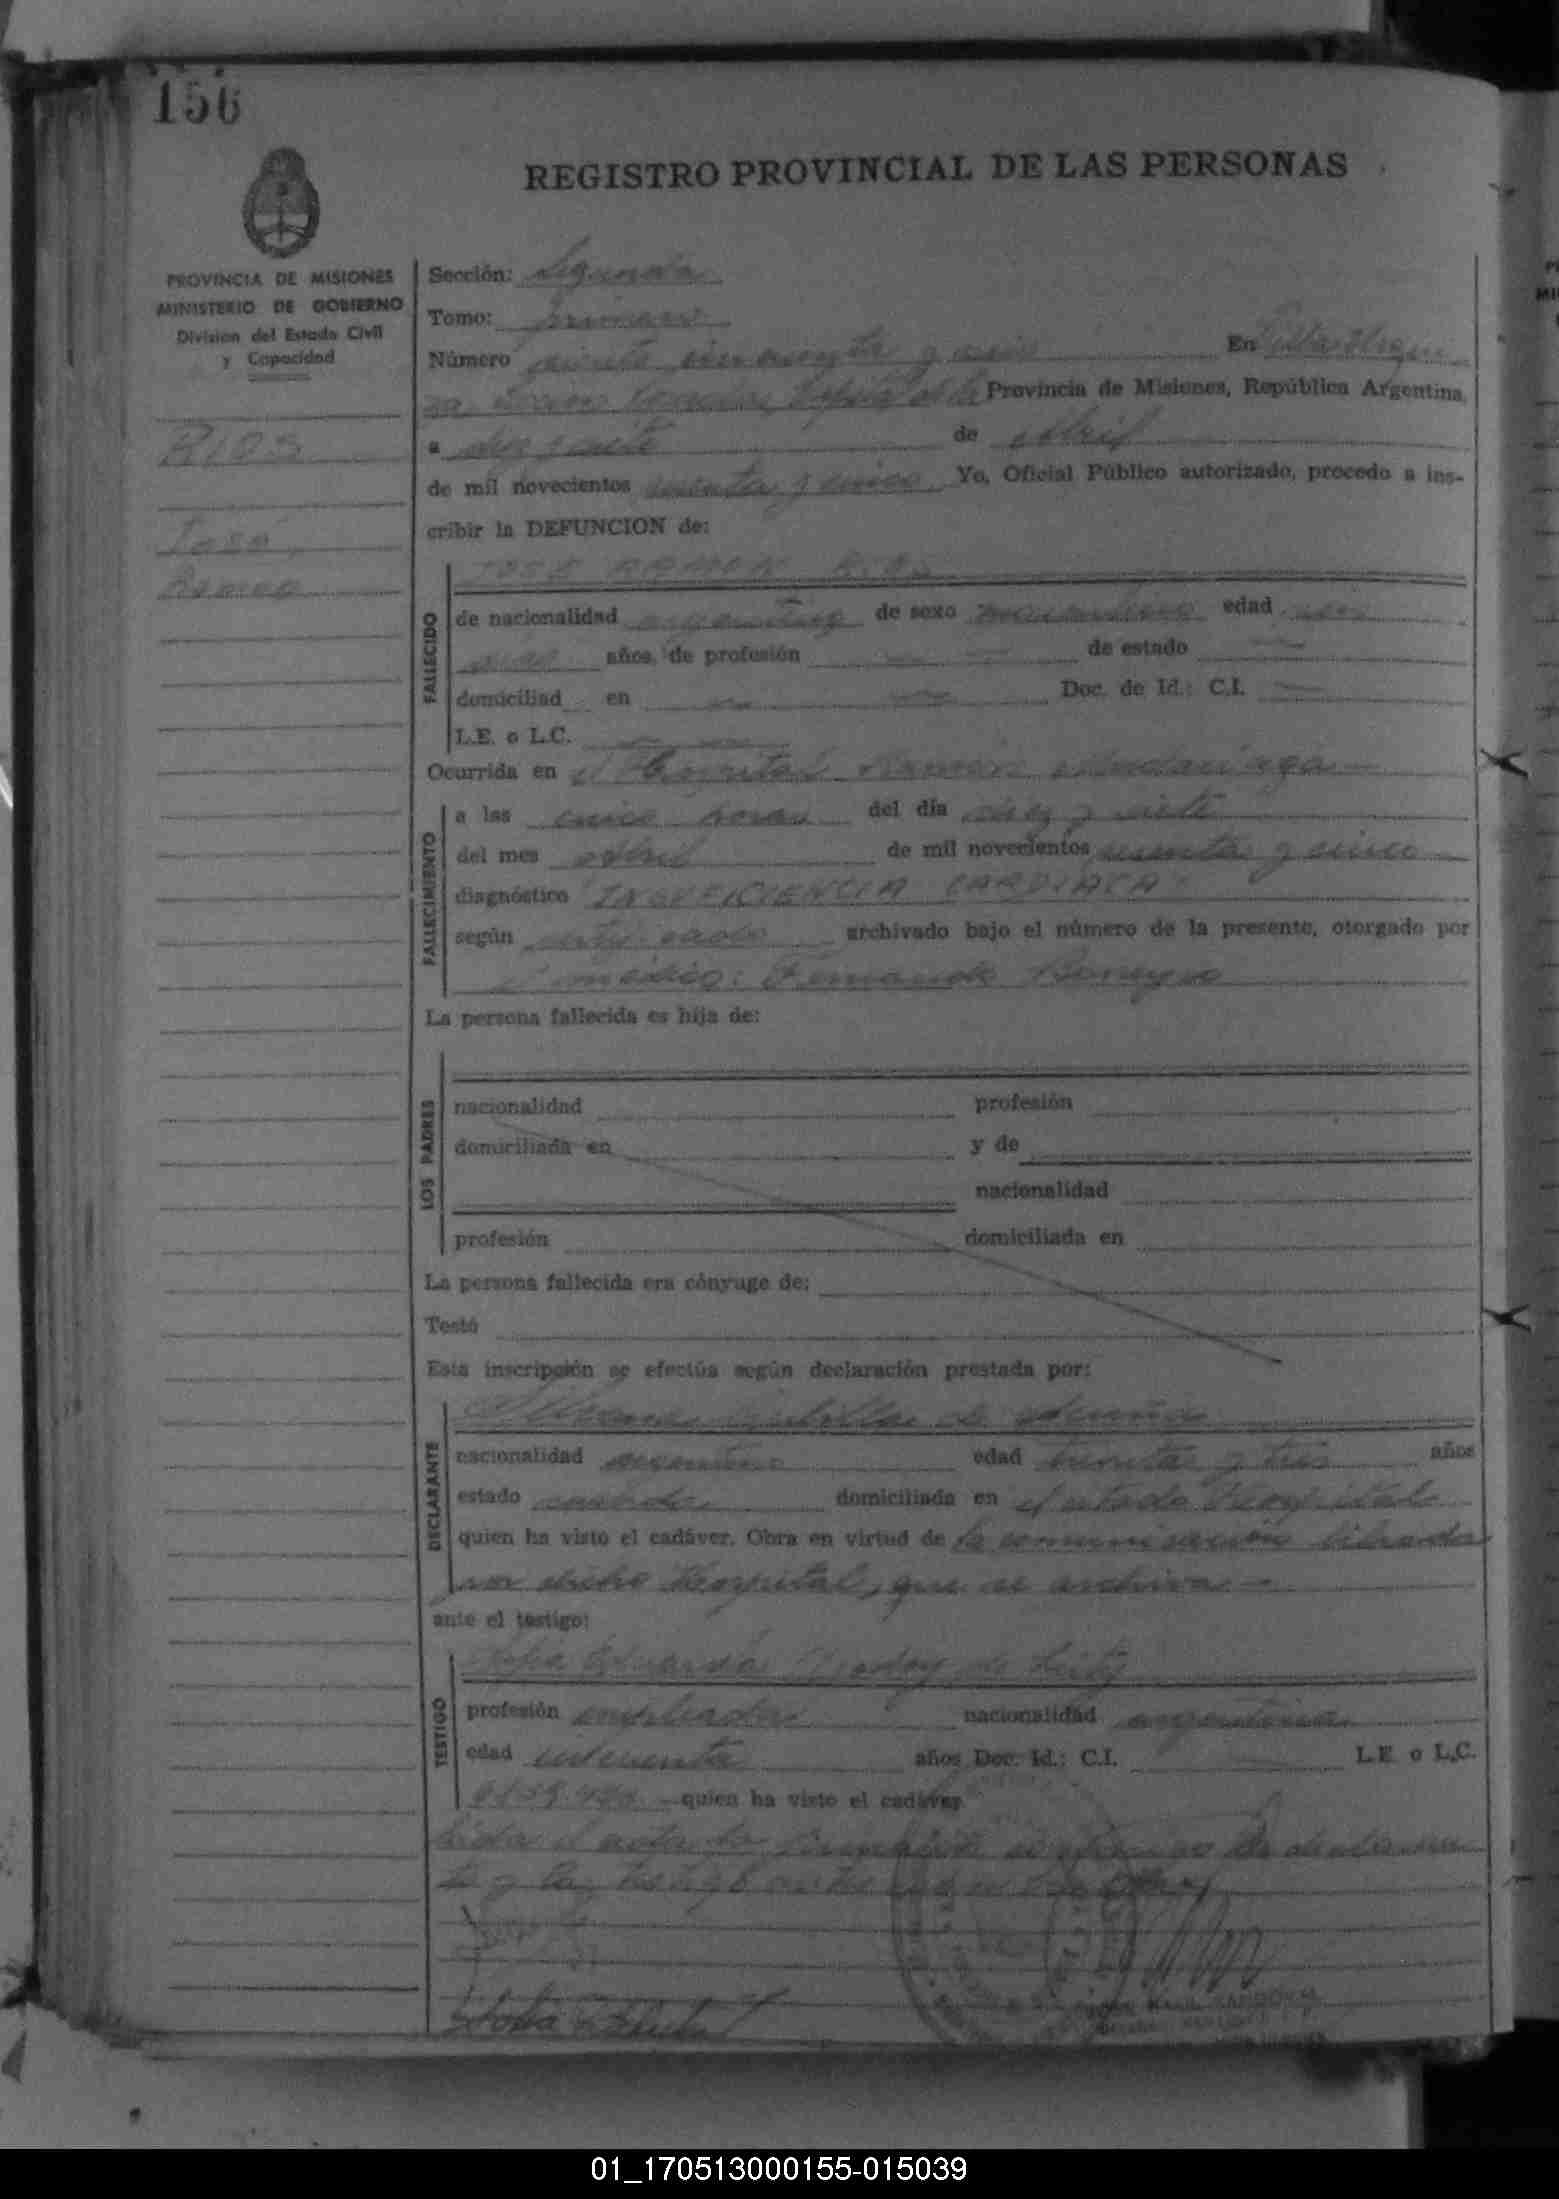 156
REGISTRO PROVINCIAL DE LAS PERSONAS
PROVINCIA DE MISIONES
MINISTERIO DE GOBIERNO
Division del Estado Civil
y Capacidad
RIOS
José
Ramon
Sección: Segunda
Tomo: primero
Número ciento cincuenta y seis En Villa Urqui
za, Provincia de Misiones, República Argentina,
a diez y siete de Abril
de mil novecientos sesenta y cinco. Yo, Oficial Público autorizado, procedo a ins-
cribir la DEFUNCION de:
FALLECIDO
JOSE RAMON RIOS
de nacionalidad argentina de sexo masculino edad seis
años, de profesión de estado
domiciliad en Doc. de Id.: C.I.
L.E. o L.C.
Ocurrida en el Hospital Ramón Madariaga
FALLECIMIENTO
a las cinco horas del día diez y siete
del mes abril de mil novecientos sesenta y cinco
diagnóstico "INSUFICIENCIA CARDIACA"
según certificado archivado bajo el número de la presente, otorgado por
el médico: Fernando
La persona fallecida es hija de:
LOS PADRES
nacionalidad profesión
domiciliada en y de
nacionalidad
profesión domiciliada en
La persona fallecida era cónyuge de:
Testó
Esta inscripción se efectúa según declaración prestada por:
DECLARANTE
de Acuña
nacionalidad argentina edad treinta y tres años
estado casada domiciliada en el citado Hospital
quien ha visto el cadáver. Obra en virtud de la comunicación librada
por dicho Hospital, que se archiva.-
ante el testigo:
TESTIGO
Eduarda de
profesión empleada nacionalidad argentina
edad cincuenta años Doc. Id.: C.I. L.E. o L.C.
quien ha visto el cadáver.
Leída el acta la
y la testigo
01_170513000155-015039